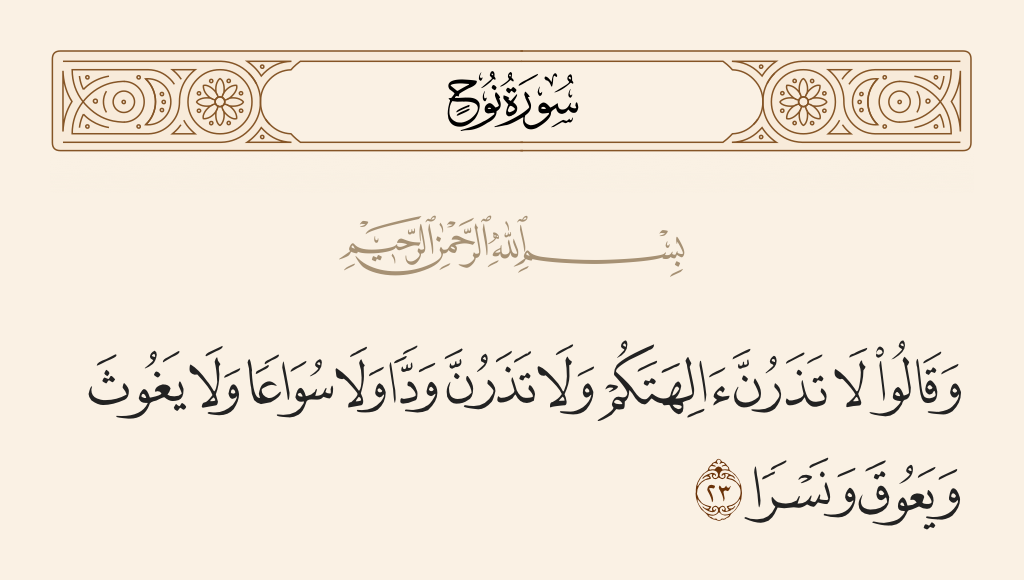 سُورَةُ نُوحٍ
بِسْمِ ٱللَّهِ ٱلرَّحْمَٰنِ ٱلرَّحِيمِ
وَقَالُوا۟ لَا تَذَرُنَّ ءَالِهَتَكُمْ وَلَا تَذَرُنَّ وَدًّا وَلَا سُوَاعًا وَلَا يَغُوثَ
وَيَعُوقَ وَنَسْرًا ٢٣